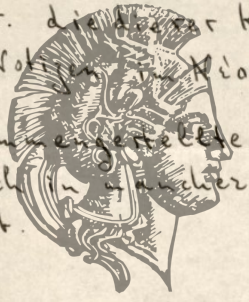 die dieser
Notizen im Neo
mmengestellte
ch in mancher